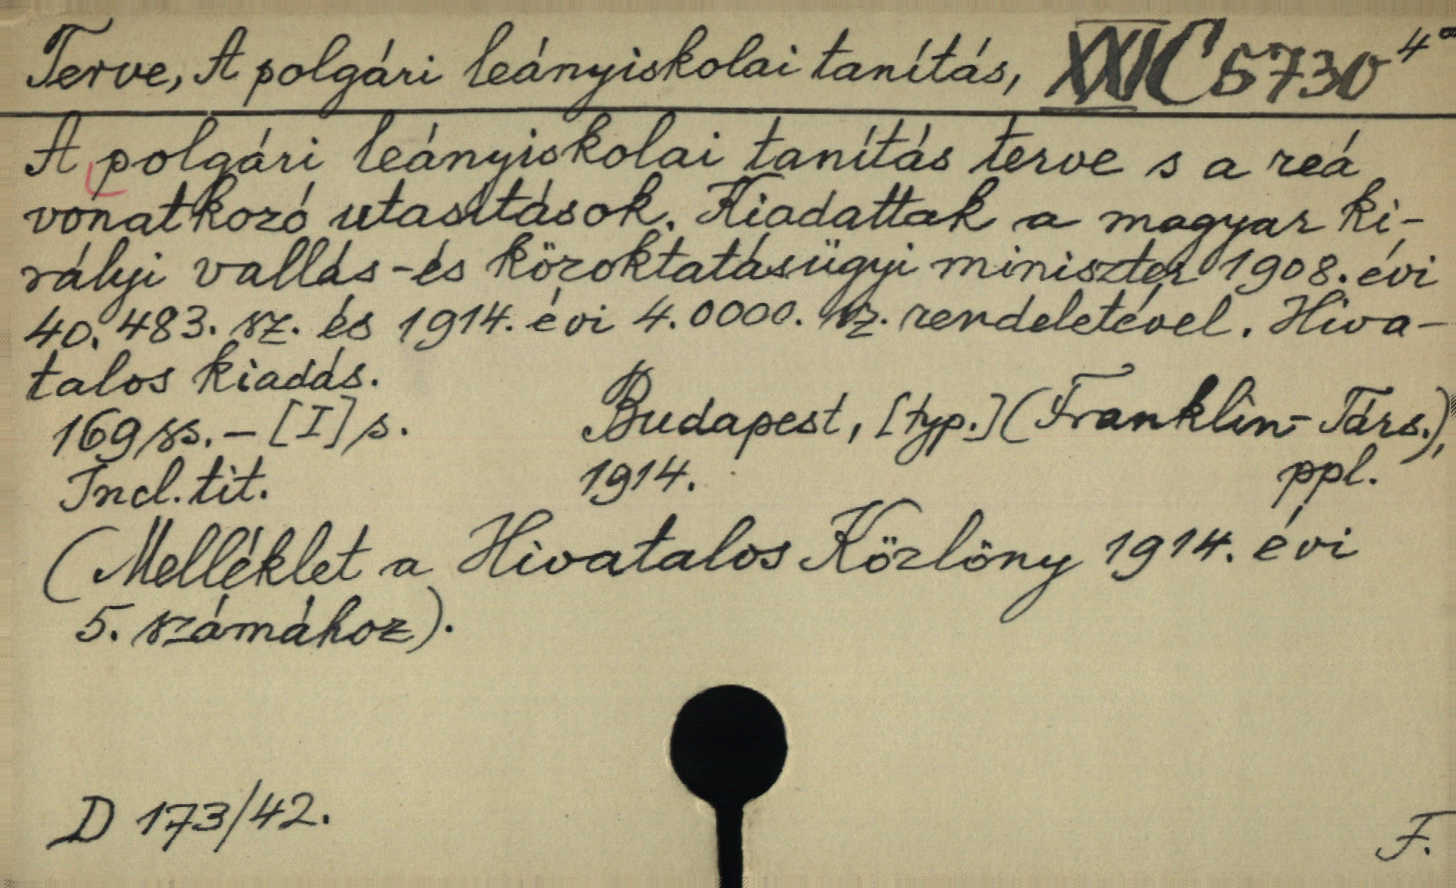 Terve, A polgári leányiskolai tanítás, XXIC 5730 4°
A polgári leányiskolai tanítás terve s a reá
vonatkozó utasítások. Kiadattak a magyar ki-
rályi vallás-és közoktatásügyi miniszter 1908. évi
40.483. sz. és 1914. évi 4.0000. sz. rendeletével. Hiva-
talos kiadás.
169 ss. – [I] s. Budapest, [typ.] (Franklin-Társ.),
Incl. tit. 1914. ppl.
(Melléklet a Hivatalos Közlöny 1914. évi
5. számához).
D 173/42.
F.